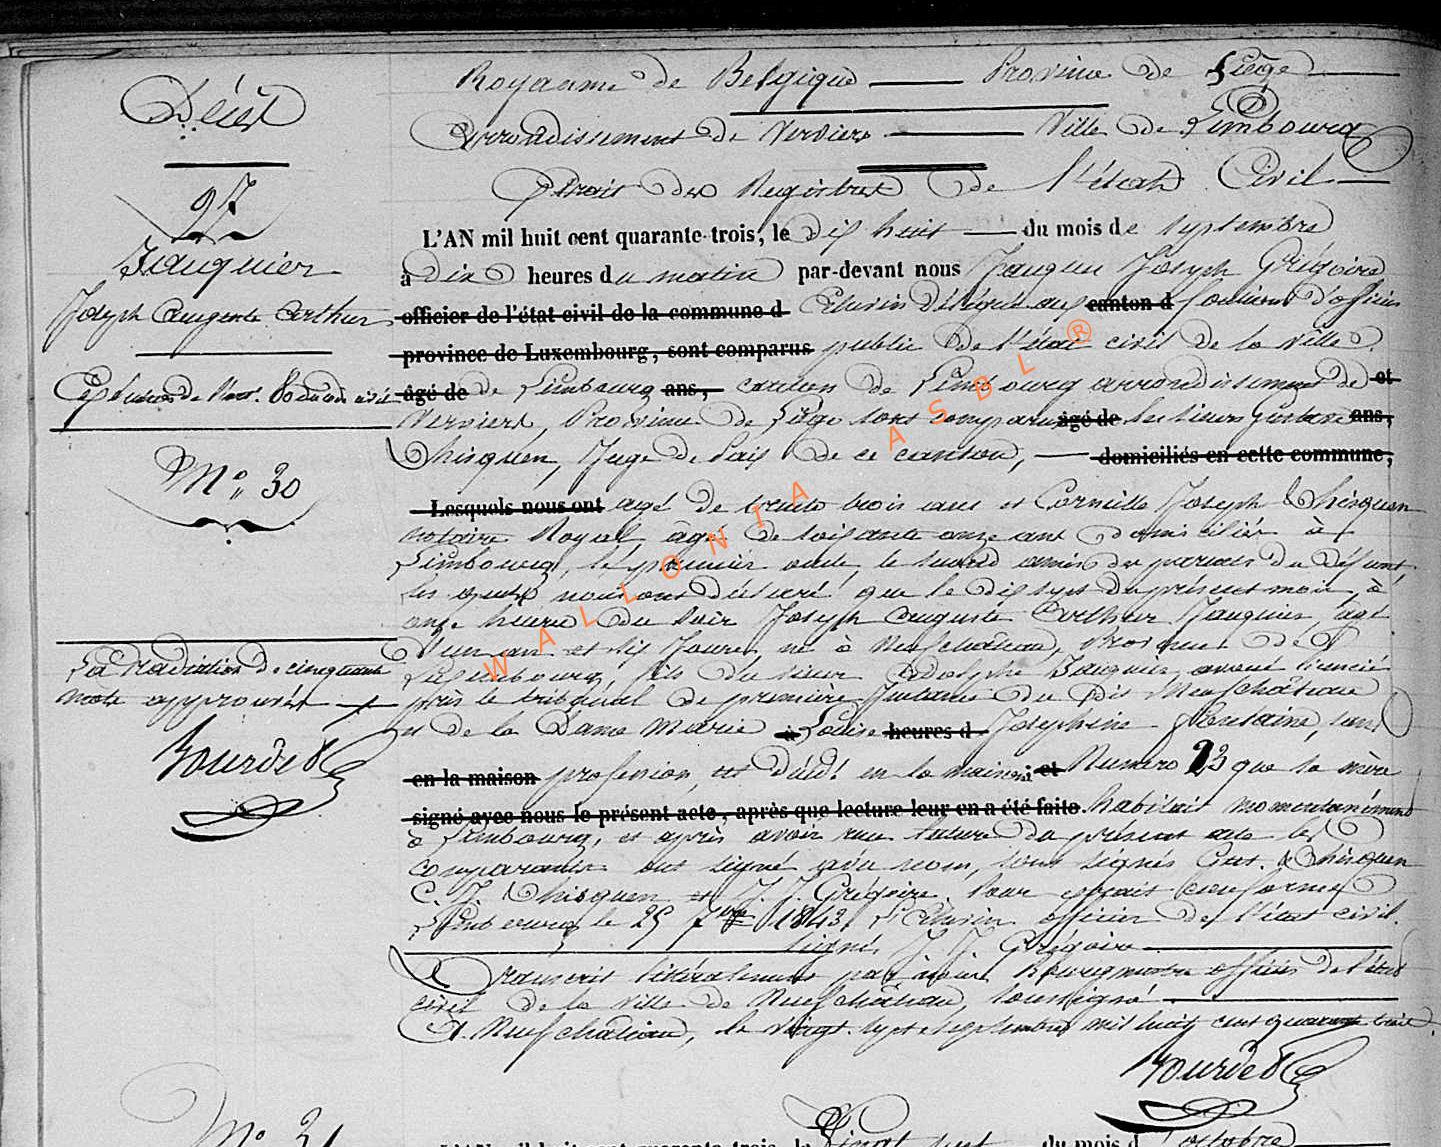 Décès
27
Jauquier
Joseph Auguste Arthur
N° 30
La radiation de cinquante
mots approuvée
Bourdet
Royaume de Belgique — Province de Liège
Arrondissement de Verviers — Ville de Limbourg
Extrait des Registres de l'état Civil
L'AN mil huit cent quarante-trois, le dix huit du mois de septembre
à dix heures du matin par-devant nous Joseph Grégoire
officier de l'état civil de la commune d Echevin délégué aux canton d fonctions d'officier
province de Luxembourg, sont comparus public de l'état civil de la ville
âgé de de Limbourg ans, canton de Limbourg arrondissement de et
Verviers, Province de Liège sont comparus âgé de les sieurs Gustave ans,
Thisquen, Juge de Paix de ce canton, — domiciliés en cette commune;
Lesquels nous ont agé de trente trois ans et Corneille Joseph Thisquen
notaire Royal âgé de soixante onze ans domiciliés à
Limbourg, le premier oncle, le second amis des parents du défunt,
les quels nous ont déclaré que le dix sept du présent mois, à
onze heures du soir Joseph Auguste Arthur Jauquier, agé
d'un an et dix jours né à Neufchâteau, Province de
Luxembourg, fils du sieur Adolphe Jauquier, avocat licencié
près le tribunal de première Instance du dit Neufchâteau
et de la Dame Marie à Louise heures d Josephine Fontaine, sans
en la maison profession, est décédé en la maison et Numéro 23 que sa mère
signé avec nous le présent acte, après que lecture leur en a été faite. habitait momentanément
à Limbourg, et après avoir eu lecture du présent acte les
comparants ont signé avec nous, sont signés Gust. Thisquen
C. J. Thisquen et J. J. Grégoire. Pour extrait conforme
Limbourg le 25 7bre 1843. L'Echevin officier de l'état civil.
signé, J. J. Grégoire
Transcrit littéralement par nous Bourgmestre officier de l'état
civil de la ville de Neufchâteau, soussigné
A Neufchâteau, le vingt sept septembre mil huit cent quarante trois.
Bourdet
WALLONIA ASBL ®
N° 31
L'AN mil huit cent quarante-trois, le du mois d octobre